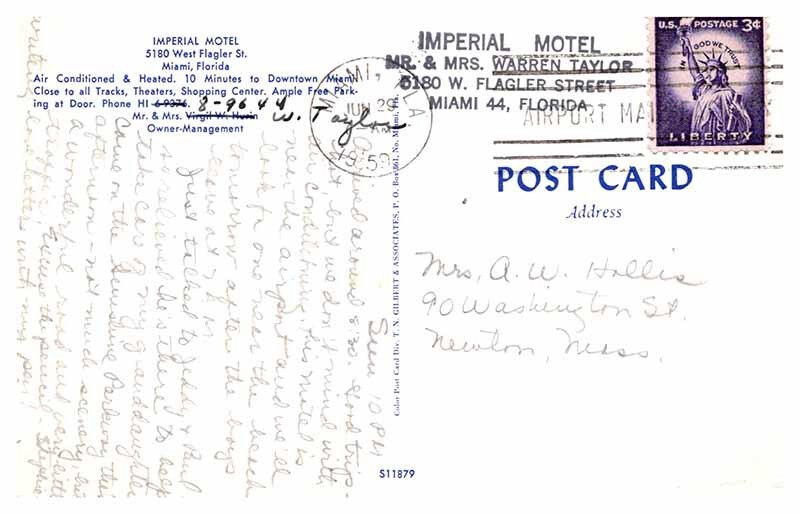 IMPERIAL MOTEL
5180 West Flagler St.
Miami, Florida
Air Conditioned & Heated. 10 Minutes to Downtown Miami.
Close to all Tracks, Theaters, Shopping Center. Ample Free Park-
ing at Door. Phone HI 69376. 8-9644
Mr. & Mrs. Virgil W. Husin W. Taylor
Owner-Management
MIAMI, FLA.
JUN 29
AM
1959
IMPERIAL MOTEL
MR. & MRS. WARREN TAYLOR
5180 W. FLAGLER STREET
MIAMI 44, FLORIDA
AIRPORT MA
U.S. POSTAGE 3¢
IN GOD WE TRUST
LIBERTY
POST CARD
Address
Mrs. A. W. Hollis
90 Washington St.
Newton, Mass.
Color Post Card Div. T. N. GILBERT & ASSOCIATES, P. O. Box 861, No. Miami, Fla.
S11879
Sun. 10 PM
Arrived around 8:30. Good trip-
but we don't mind with
air conditioning. This motel is
near the airport and we'll
look for one near the beach
tomorrow after the boys
leave at
Just talked to Teddy & Paul
relieved he's there to help
take care of my granddaughter
Came on the Sunshine Parkway this
afternoon - not much scenery, but
a wonderful road and very little
traffic. Excuse the pencil - Stephie
writing letters with my pen!